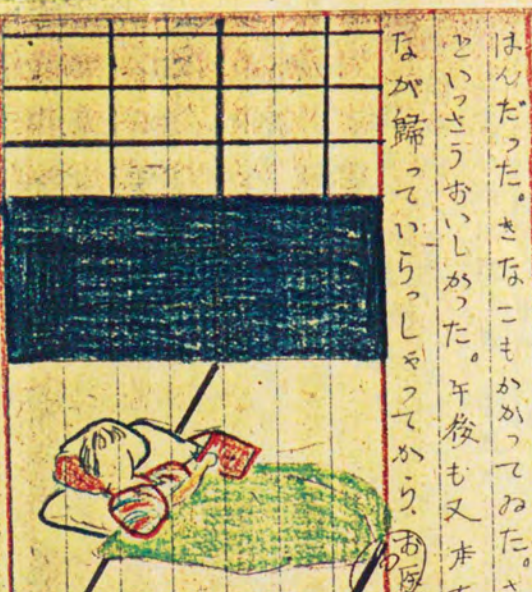 はんだった。きなこもかかってゐた。さ
といっさうおいしかった。午後も又本
なが歸っていらっしゃってから、お医